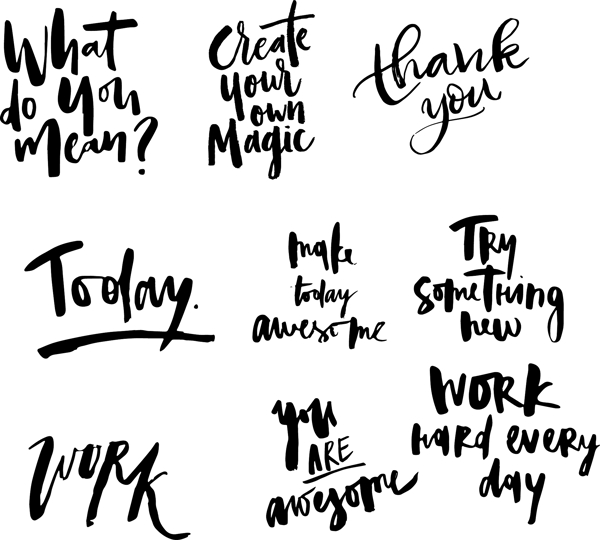 What
do you
mean?
Create
your
own
Magic
thank
you
Today.
make
today
awesome
TRY
someTHing
new
WORK
you
ARE
awesome
WORK
hard every
day